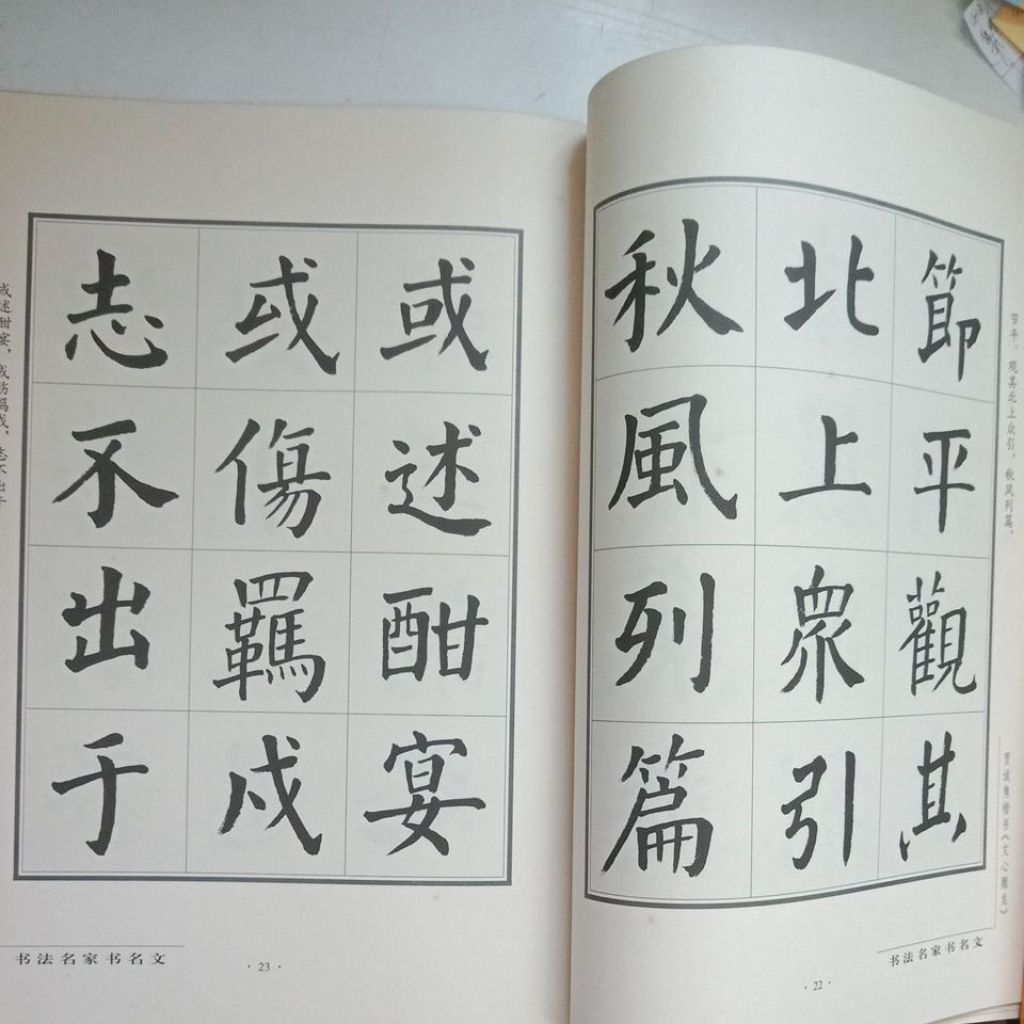 節平觀其
北上眾引
秋風列篇
节平。观其北上众引，秋风列篇，
楷书《文心雕龙》
书法名家书名文
·22·
或述酣宴
或傷羈戍
志不出于
或述酣宴，或伤羁戍，志不出于
书法名家书名文
·23·